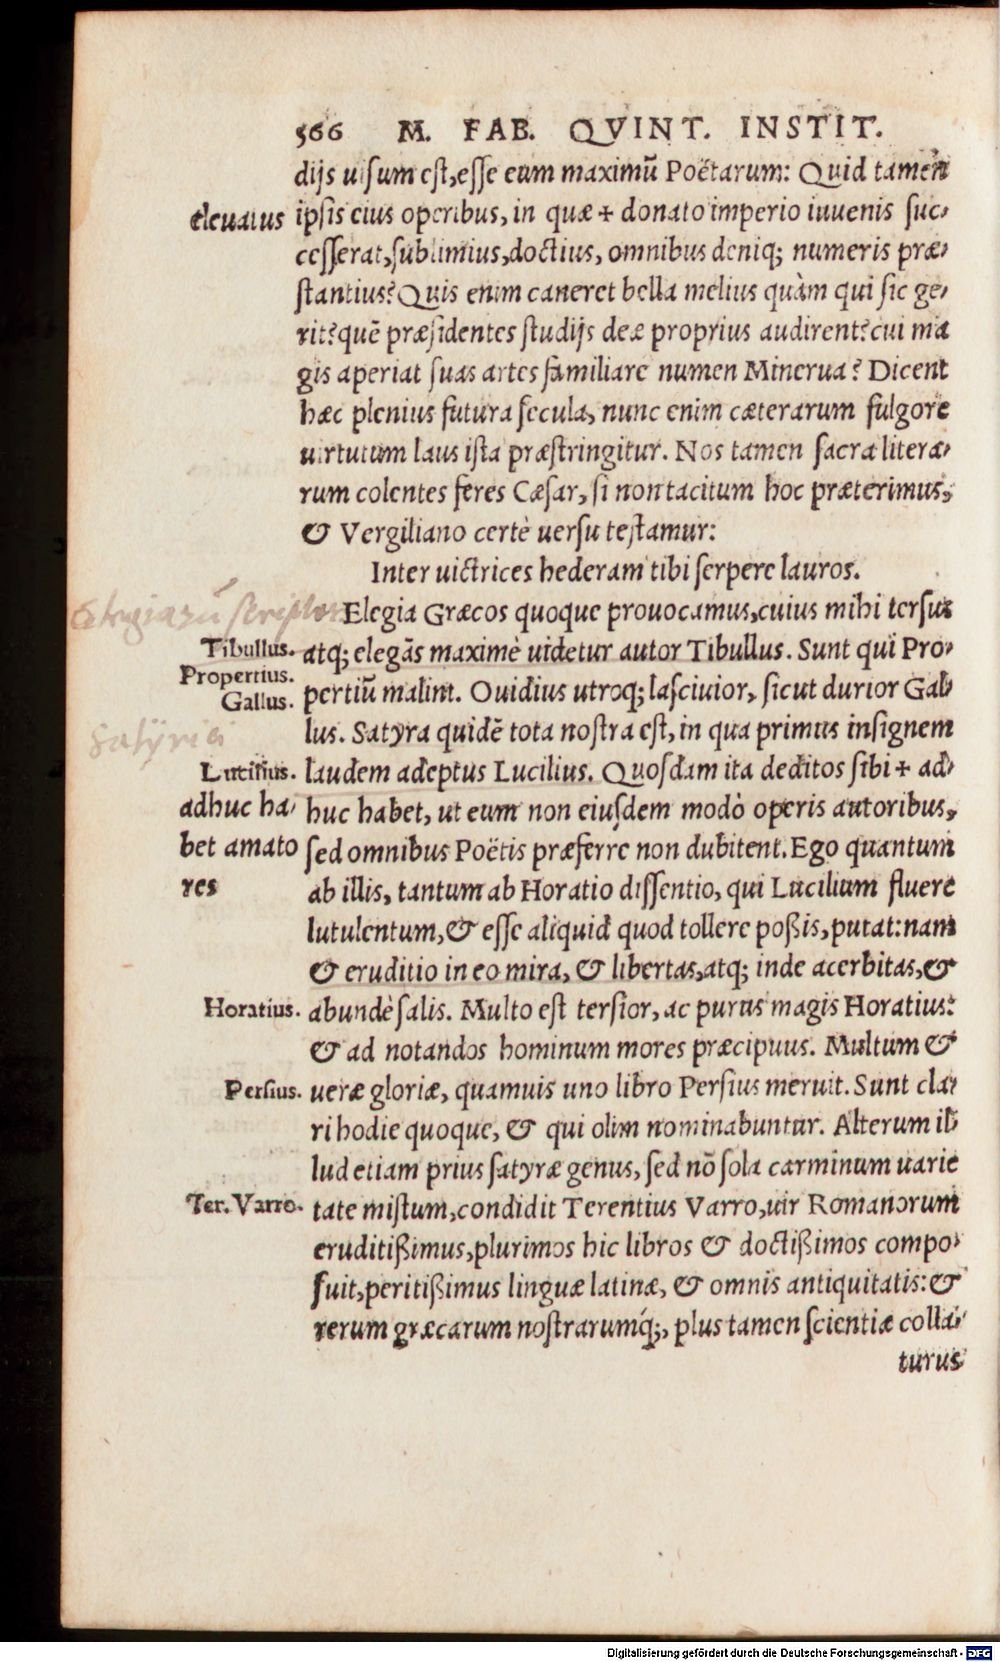 566 M. FAB. QVINT. INSTIT.
dijs uisum est, esse eum maximū Poëtarum: Quid tamen
eleuatus
ipsis eius operibus, in quæ + donato imperio iuuenis suc-
cesserat, sublimius, doctius, omnibus deniq; numeris præ-
stantius? Quis enim caneret bella melius quàm qui sic ge-
rit? quē præsidentes studijs deæ proprius audirent? cui ma
gis aperiat suas artes familiare numen Minerua? Dicent
hæc plenius futura secula, nunc enim cæterarum fulgore
uirtutum laus ista præstringitur. Nos tamen sacra litera-
rum colentes feres Cæsar, si non tacitum hoc præterimus,
& Vergiliano certè uersu testamur:
Inter uictrices hederam tibi serpere lauros.
Elegiazū scriptores
Elegia Græcos quoque prouocamus, cuius mihi tersus
Tibullus.
atq; elegās maximè uidetur autor Tibullus. Sunt qui Pro-
Propertius.
Gallus.
pertiū malint. Ouidius utroq; lasciuior, sicut durior Gal-
lus. Satyra quidē tota nostra est, in qua primus insignem
Satyrici
Lucilius.
laudem adeptus Lucilius. Quosdam ita deditos sibi + ad-
adhuc ha-
bet amato
res
huc habet, ut eum non eiusdem modò operis autoribus,
sed omnibus Poëtis præferre non dubitent. Ego quantum
ab illis, tantum ab Horatio dissentio, qui Lucilium fluere
lutulentum, & esse aliquid quod tollere poßis, putat: nam
& eruditio in eo mira, & libertas, atq; inde acerbitas, &
Horatius.
abundè salis. Multo est tersior, ac purus magis Horatius:
& ad notandos hominum mores præcipuus. Multum &
Persius.
ueræ gloriæ, quamuis uno libro Persius meruit. Sunt cla-
ri hodie quoque, & qui olim nominabuntur. Alterum il-
lud etiam prius satyræ genus, sed nō sola carminum uarie
Ter. Varro.
tate mistum, condidit Terentius Varro, uir Romanorum
eruditißimus, plurimos hic libros & doctißimos compo-
suit, peritißimus linguæ latinæ, & omnis antiquitatis: &
rerum græcarum nostrarumq́;, plus tamen scientiæ colla-
turus
Digitalisierung gefördert durch die Deutsche Forschungsgemeinschaft - DFG